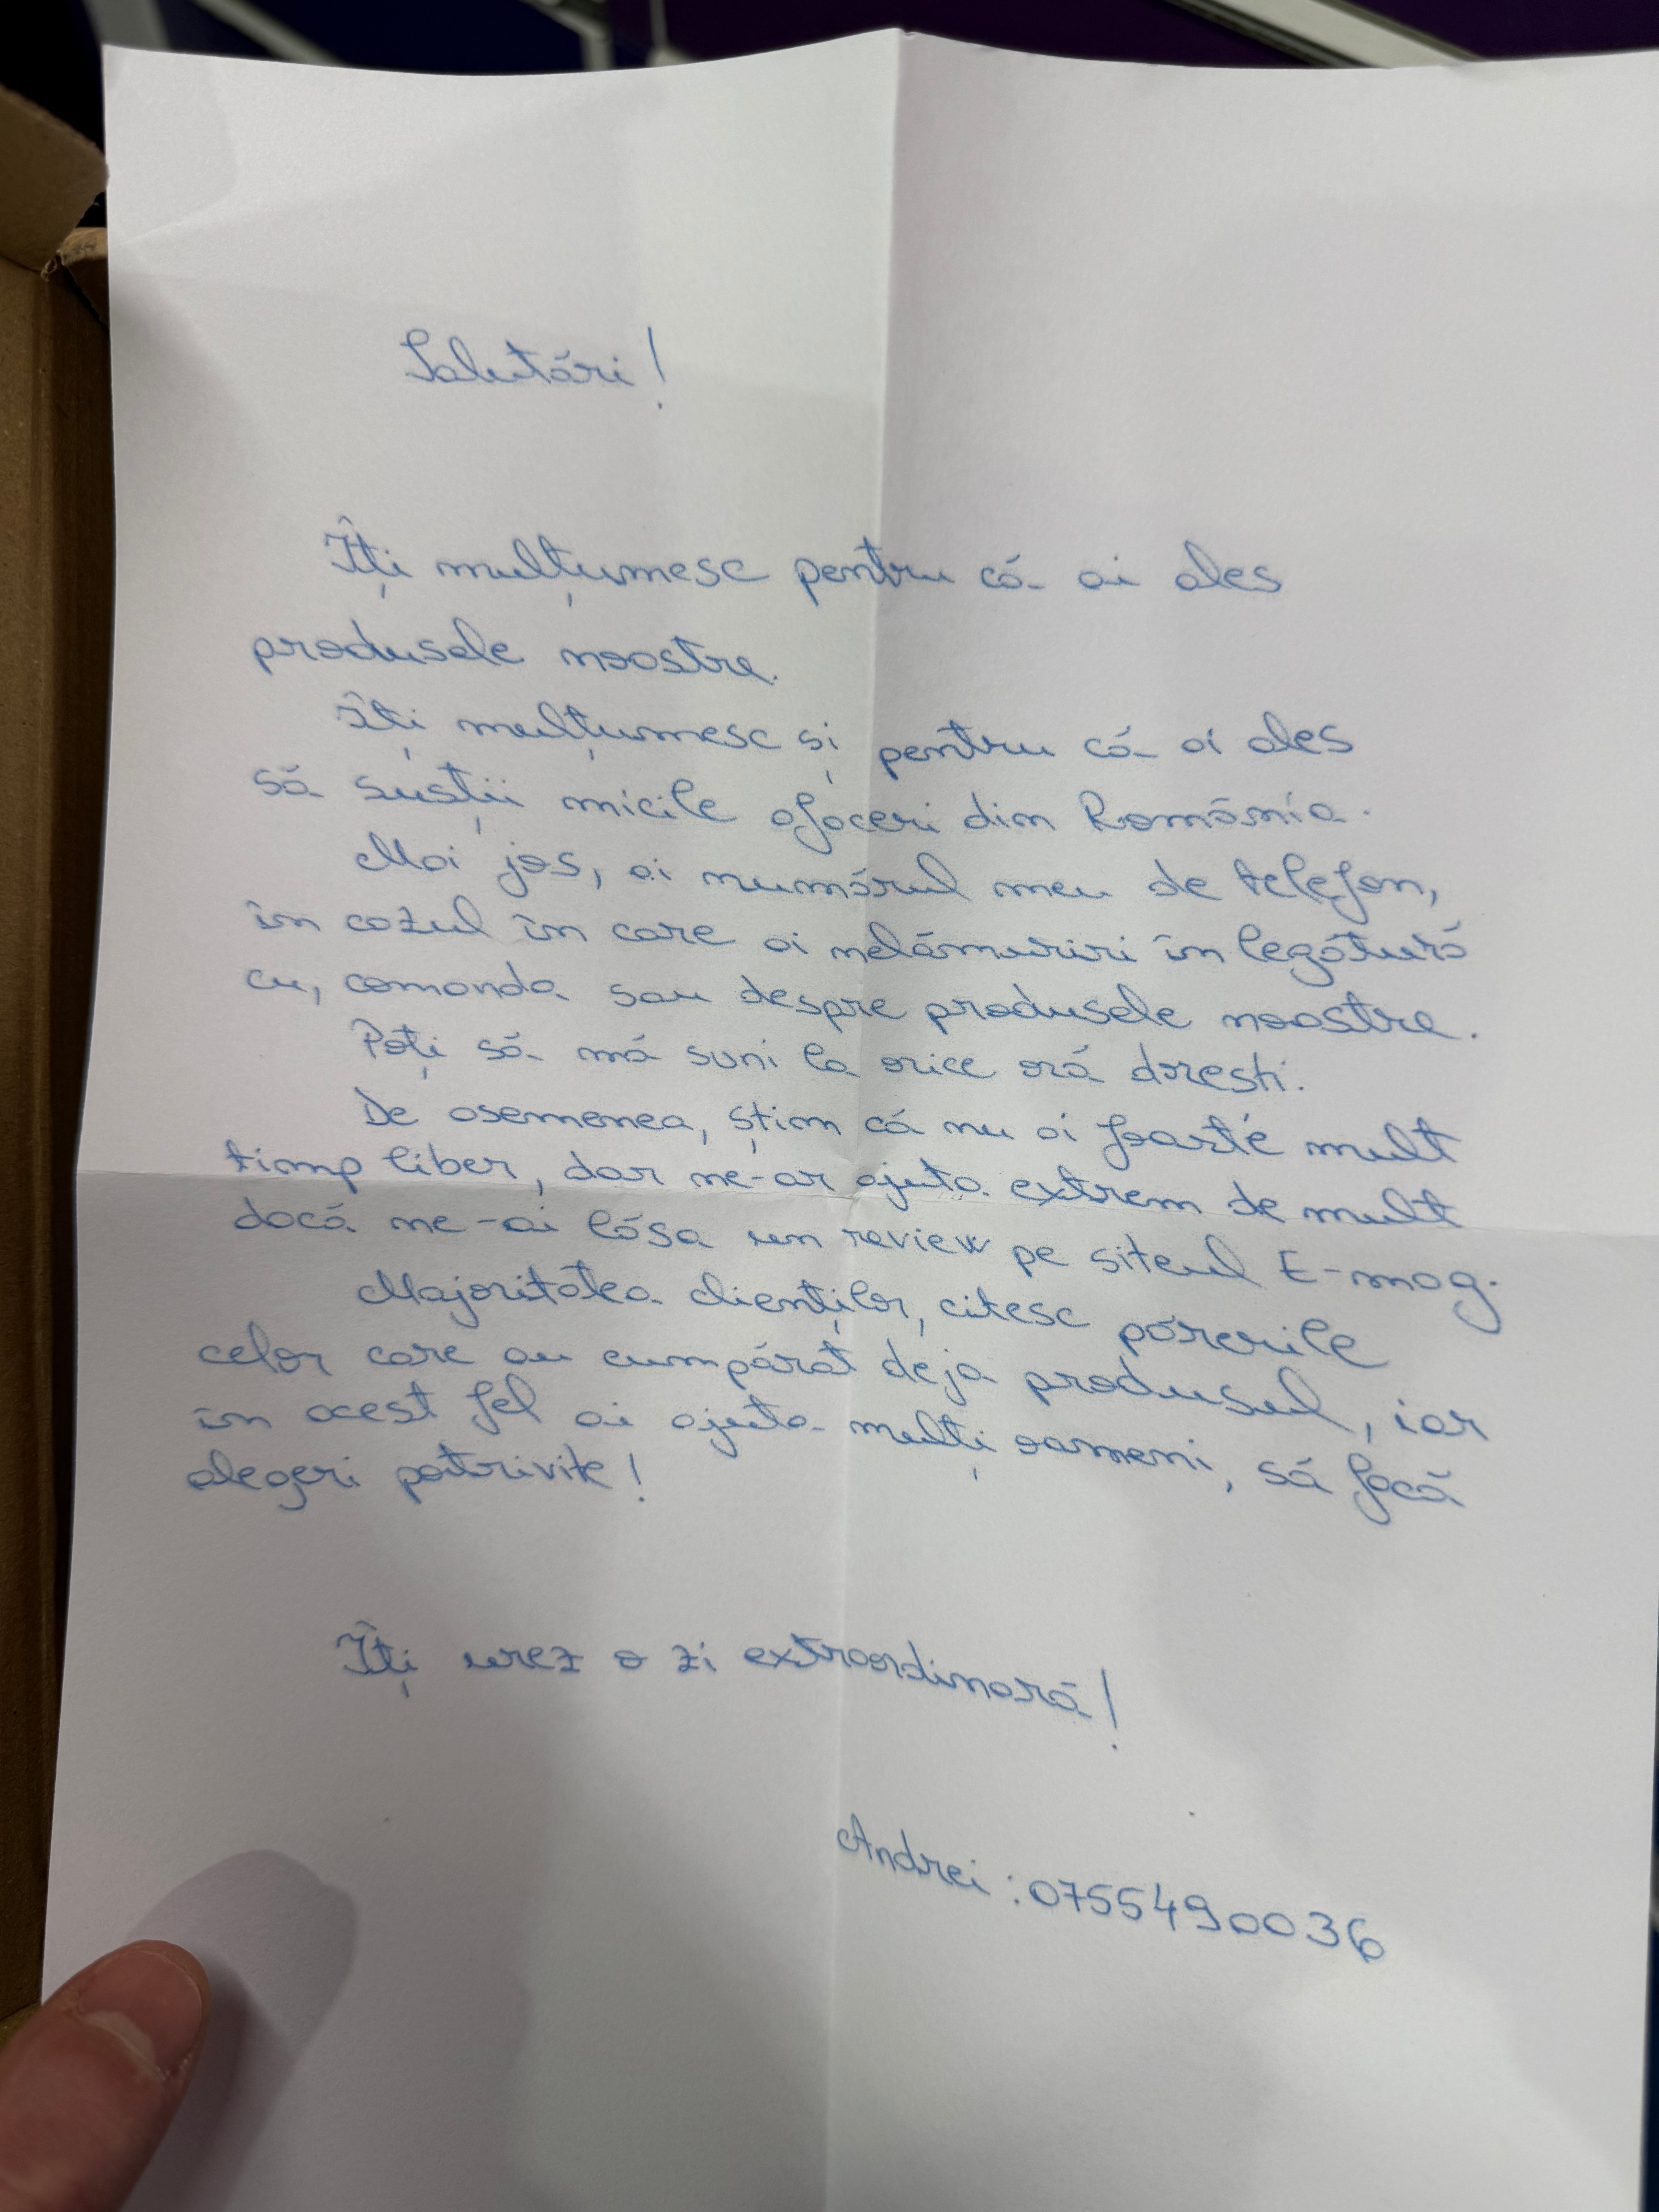 Salutări!
Îți mulțumesc pentru că ai ales
produsele noastre.
Îți mulțumesc și pentru că ai ales
să susții micile afaceri din România.
Mai jos, ai numărul meu de telefon,
în cazul în care ai nelămuriri în legătură
cu, comanda sau despre produsele noastre.
Poți să mă suni la orice oră drești.
De asemenea, știm că nu ai foarte mult
timp liber, dar ne-ar ajuta extrem de mult
dacă ne-ai lăsa un review pe siteul E-mag.
Majoritatea clienților, citesc părerile
celor care au cumpărat deja produsul, iar
în acest fel ai ajuta mulți oameni, să facă
alegeri potrivite!
Îți urez o zi extraordinară!
Andrei: 0755490036